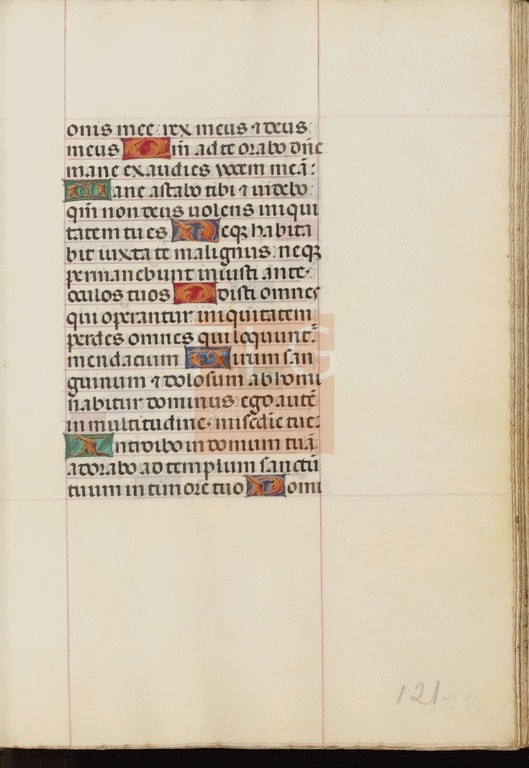 onis mee: rex meus ⁊ deus
meus Qm̄ ad te orabo dn̄e
mane exaudies vocem meā:
Mane astabo tibi ⁊ uidebo
qm̄ non deus uolens iniqui
tatem tu es Neqꝫ habita
bit iuxta te malignus: neqꝫ
permanebunt iniusti ante
oculos tuos Odisti omnes
qui operantur iniquitatem
perdes omnes qui loquunt᷑
mendacium Uirum san
guinum ⁊ dolosum abhomi
nabitur dominus: ego autē
in multitudine misedie tue:
Introibo in domum tuā
adorabo ad templum sanctū
tuum in timore tuo Domi
121